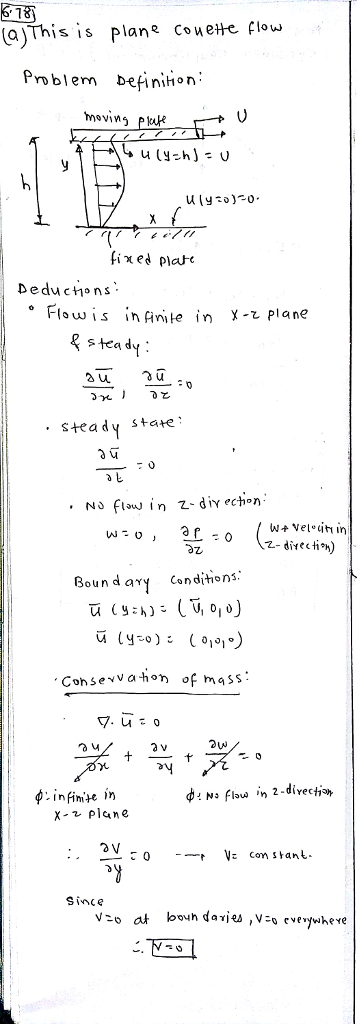 6.78
(a) This is plane couette flow
Problem Definition:
moving plate → U
u(y=h) = U
y
h
u(y=0)=0.
x
fixed plate
Deductions:
° Flow is infinite in x-z plane
& steady:
∂ū/∂x , ∂ū/∂z = 0
. steady state:
∂ū/∂t = 0
. No flow in z-direction:
w=0, ∂p/∂z = 0 (w→velocity in z-direction)
Boundary conditions:
ū (y=h) = (U,0,0)
ū (y=0) = (0,0,0)
· Conservation of mass:
∇.ū = 0
∂u/∂x + ∂v/∂y + ∂w/∂z = 0
φ: infinite in x-z plane
φ: No flow in z-direction
∴ ∂v/∂y = 0 --→ V= constant.
Since
V=0 at boundaries, V=0 everywhere
∴ V=0